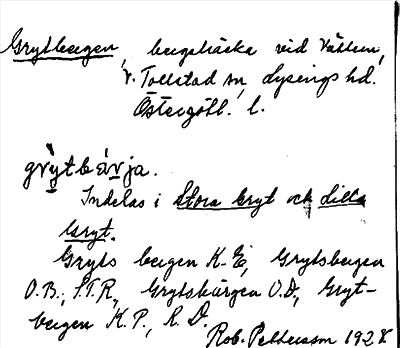 Grytbergen, bergsträcka vid Vättern,
V. Tollstad sn, Lysings hd.
Östergötl. l.
grỳtbæ̀rja.
Indelas i Stora Gryt och Lilla
Gryt.
Gryts bergen K.E., Grytsbergen
O.B., S.T.R, Grytsbärgen O.D., Gryt-
bergen K.P., R.D.
Rob. Pettersson 1928